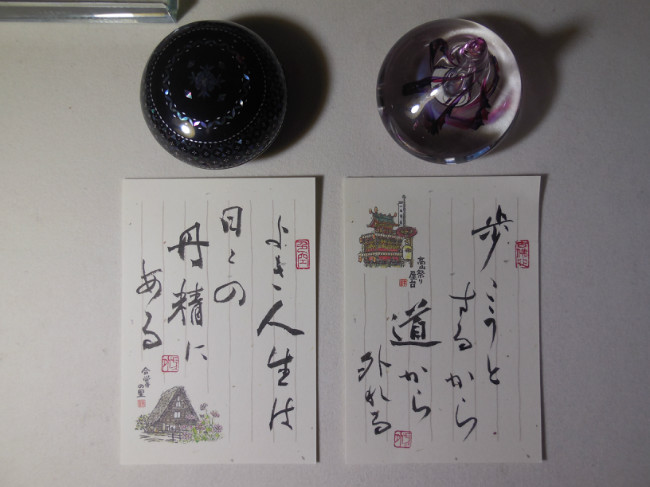 歩こうと
するから
道から
外れる
高山祭り
屋台
よき人生は
日々の
丹精に
ある
合掌の里